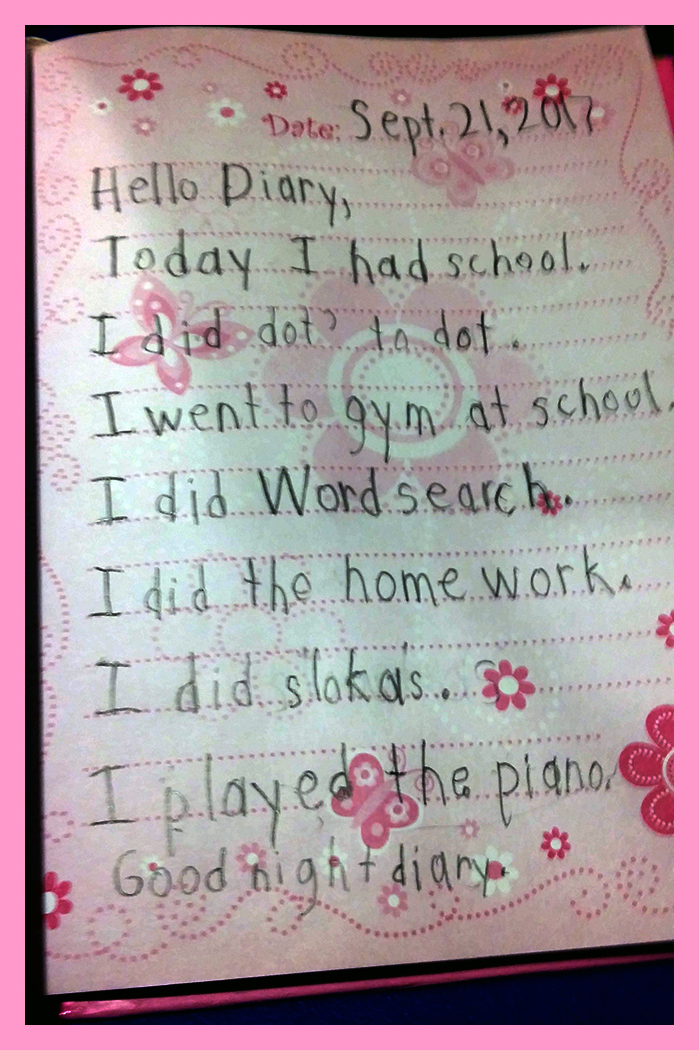 Date: Sept. 21, 2017
Hello Diary,
Today I had school.
I did dot to dot.
I went to gym at school.
I did Word search.
I did the home work.
I did slokas.
I played the piano.
Good night diary.